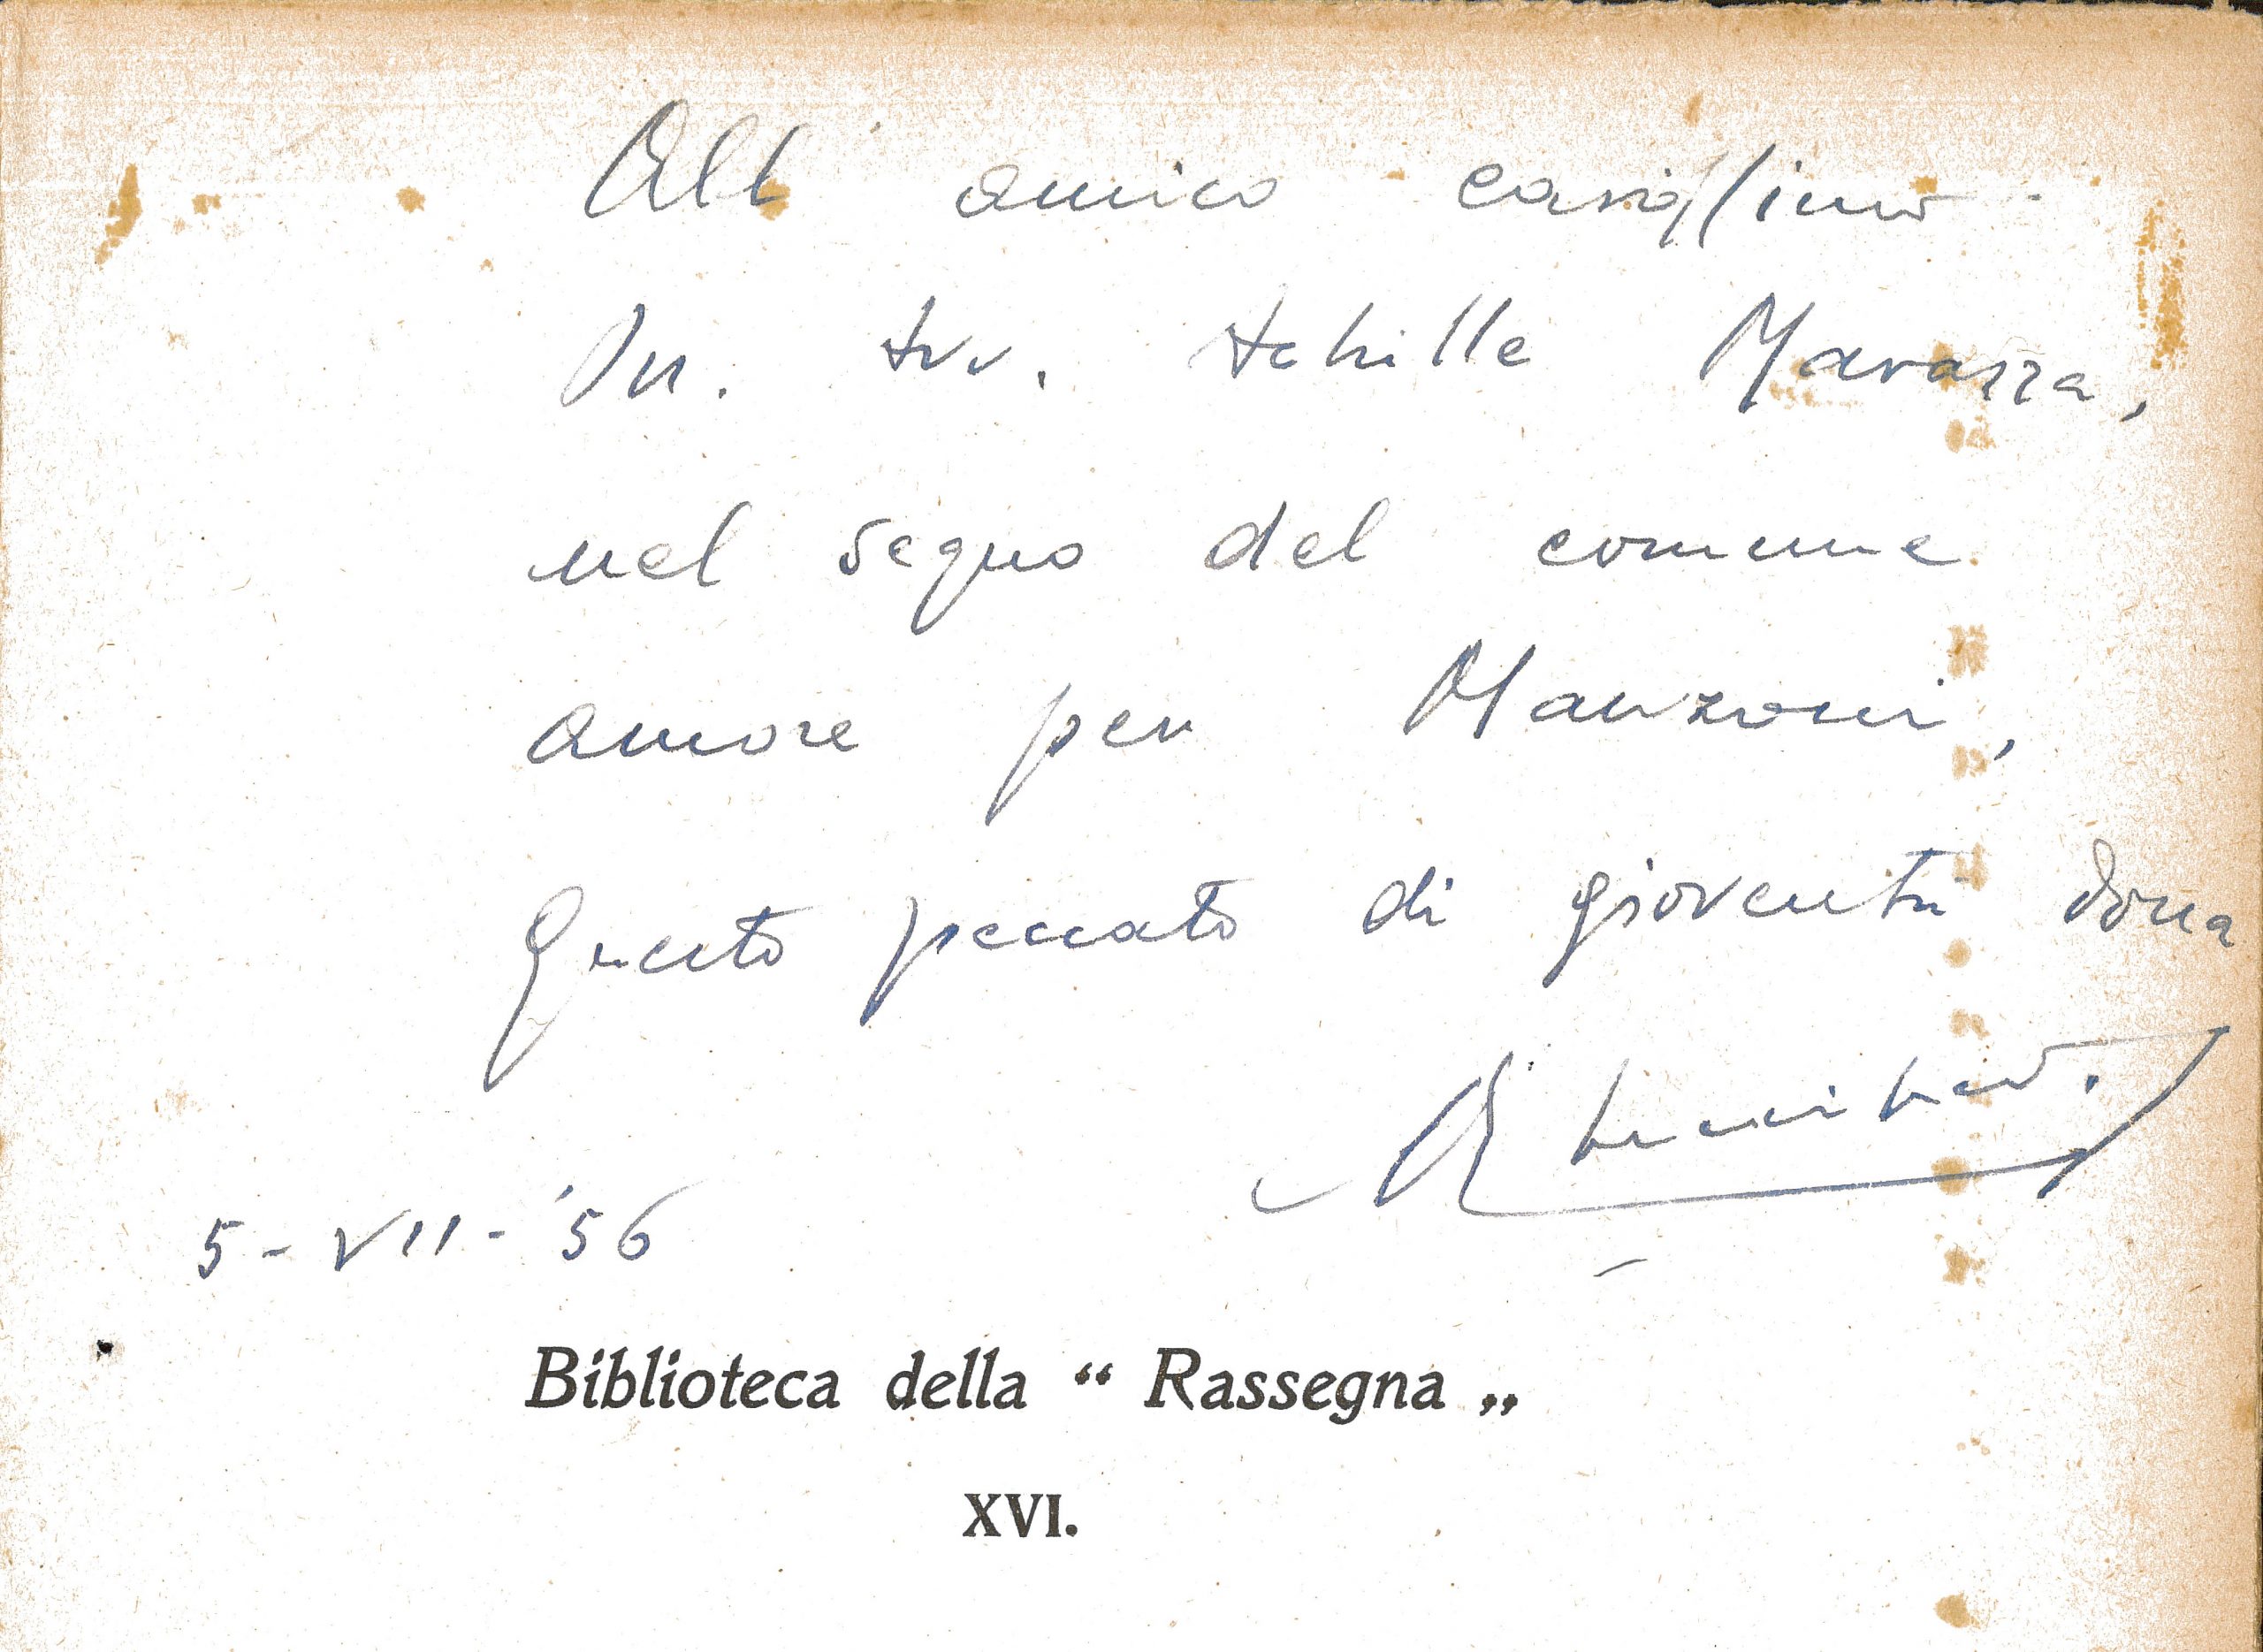 All' amico carissimo
On. Avv. Achille Marazza,
nel segno del comune
amore per Manzoni,
questo peccato di gioventù dona
5-VII-'56
Biblioteca della “ Rassegna „
XVI.